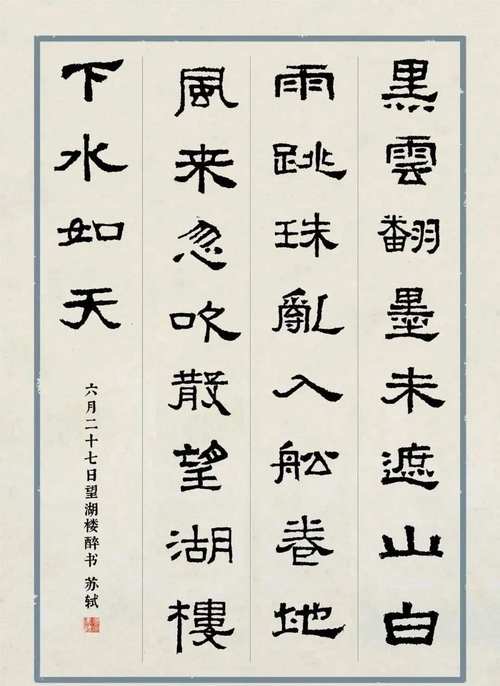 黑雲翻墨未遮山白
雨跳珠亂入舩卷地
風来忽吹散望湖樓
下水如天
六月二十七日望湖楼醉书 苏轼